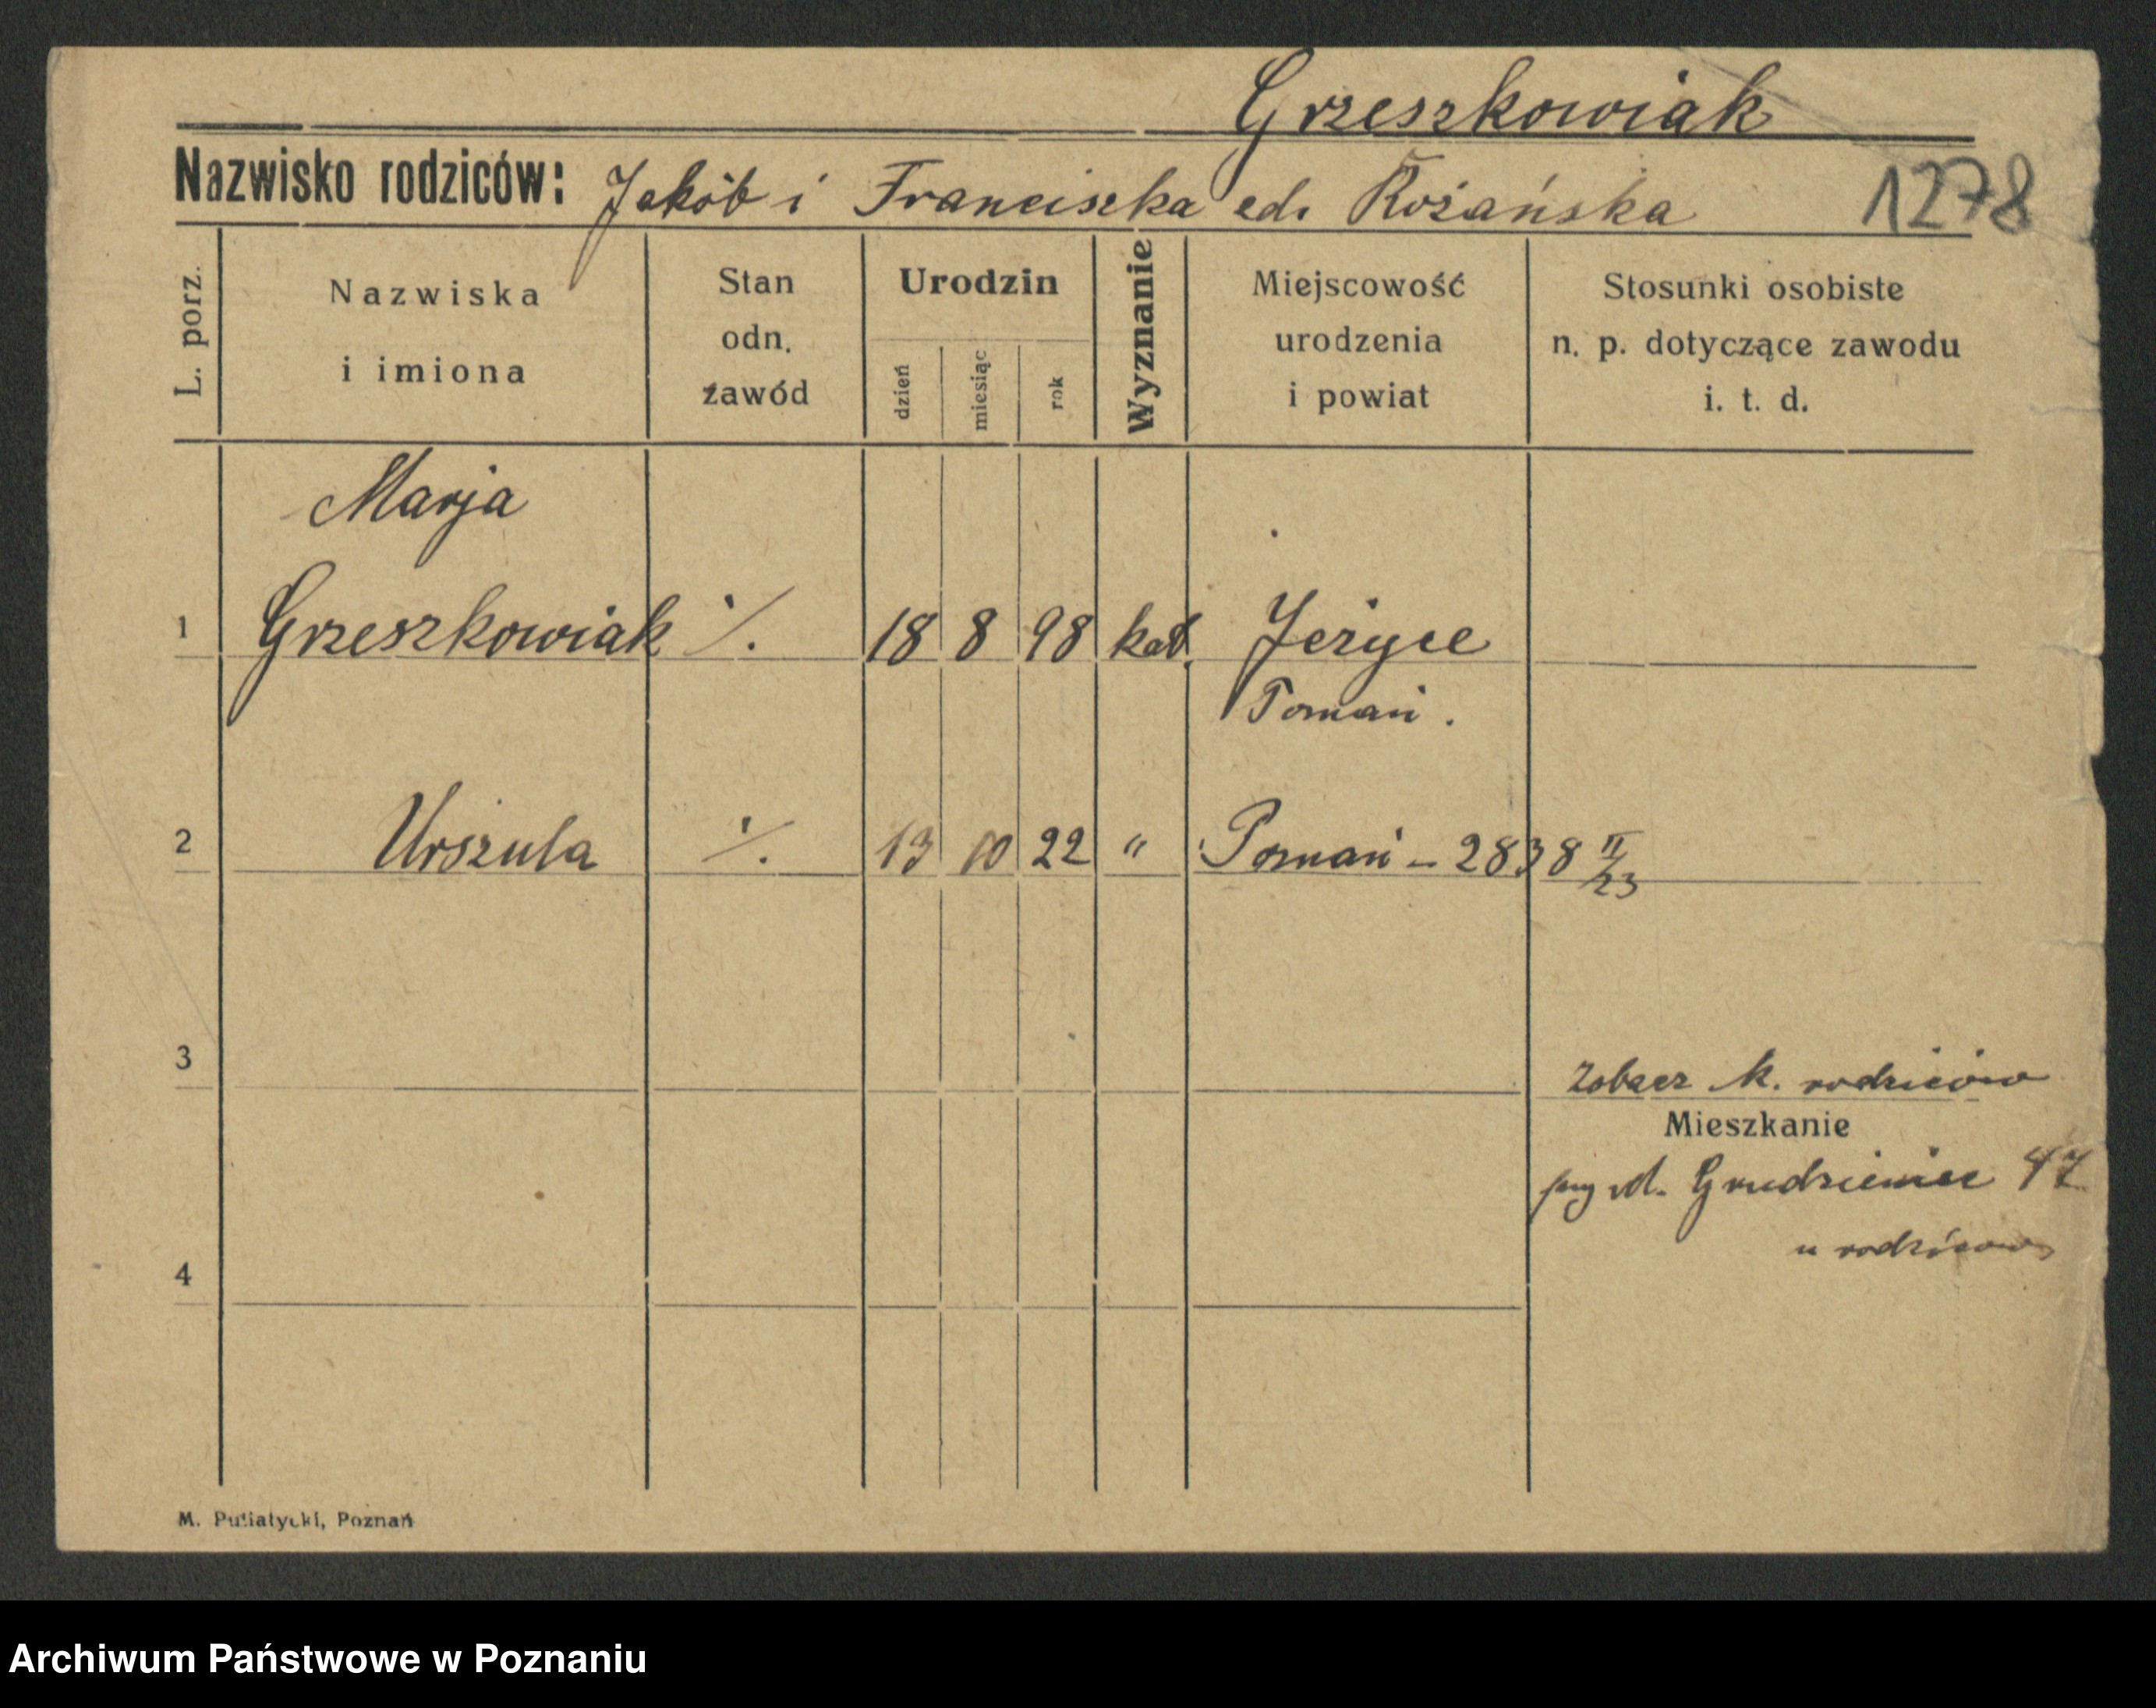 Grzeszkowiak
Nazwisko rodziców: Jakób i Franciszka Rożańska 1278
L. porz.
Nazwiska
i imiona
Stan
odn.
zawód
Urodzin
dzień
miesiąc
rok
Wyznanie
Miejscowość
urodzenia
i powiat
Stosunki osobiste
n. p. dotyczące zawodu
i. t. d.
Marja
1 Grzeszkowiak ·/. 18 8 98 kat. Jeżyce
Poznań.
2 Urszula ·/. 13 10 22 " Poznań – 2838 II/23
3 Zobacz k. rodziców
Mieszkanie
ul. Grudzieniec 47
u rodziców
4
M. Putiatycki, Poznań
Archiwum Państwowe w Poznaniu